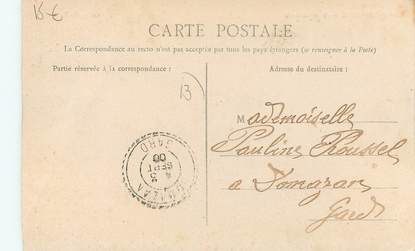 15 €
CARTE POSTALE
La Correspondance au recto n'est pas acceptée par tous les pays étrangers (se renseigner à la Poste)
Partie réservée à la correspondance :
Adresse du destinataire :
13
Mademoiselle
Pauline Roussel
a Domazan
Gard
DOMAZAN
GARD
4
SEPT